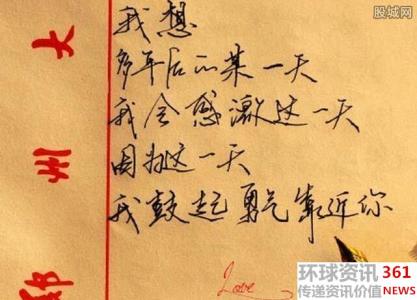 股城网
Gucheng.com
大
州
郑
我想
多年后的某一天
我会感激这一天
因为这一天
我鼓起勇气靠近你
Love
环球资讯 361
传递资讯价值 NEWS